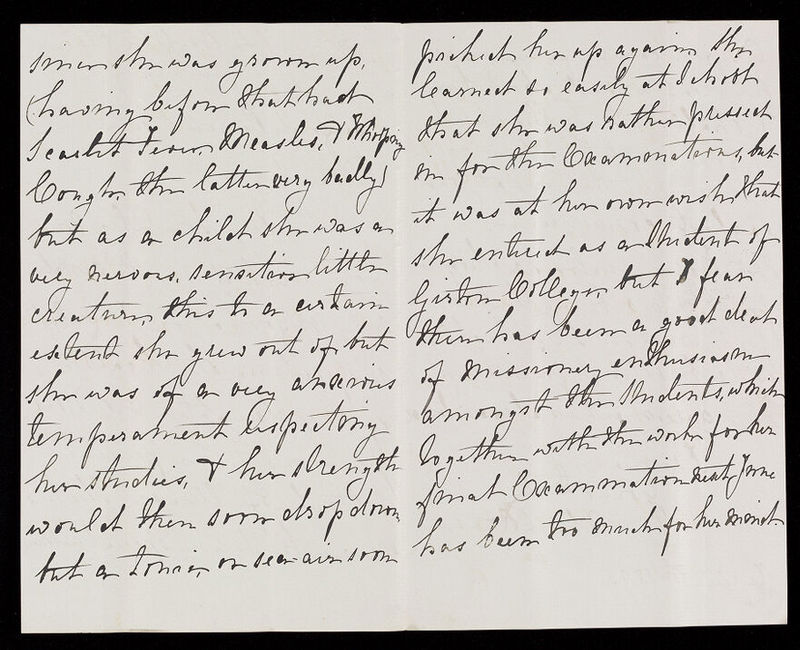 since she was grown up,
(having before that had
Scarlet Fever, Measles, & Whooping
Cough, the latter very badly)
but as a child she was a
very nervous, sensitive little
creature, this to a certain
extent she grew out of, but
she was of a very anxious
temperament respecting
her studies, & her strength
would then soon drop down,
but a tonic, or sea-air soon
picked her up again, she
learned so easily at School
that she was rather pressed
on for the Examinations, but
it was at her own wish that
she entered as a Student of
Girton College, but I fear
there has been a good deal
of missionary enthusiasm
amongst the Students, which
together with the work for her
final Examination next June
has been too much for her mind